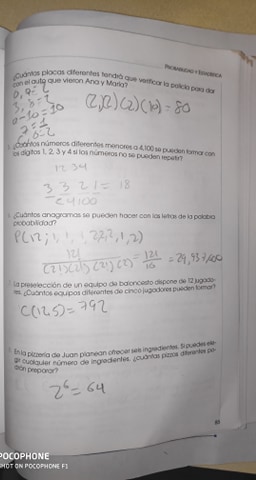 PROBABILIDAD Y ESTADÍSTICA
¿Cuántas placas diferentes tendrá que verificar la policía para dar
con el auto que vieron Ana y María?
(2)(2)(10) = 80
¿Cuántos números diferentes menores a 4,100 se pueden formar con
los dígitos 1, 2, 3 y 4 si los números no se pueden repetir?
12 34
3 3 2 1 = 18
¿Cuántos anagramas se pueden hacer con las letras de la palabra
probabilidad?
P(12; 1, 1, 1, 2,2,2, 1, 2)
12! = 12! = 29,937,600
(2!)(2!)(2!)(2) 16
La preselección de un equipo de baloncesto dispone de 12 jugado-
res. ¿Cuántos equipos diferentes de cinco jugadores pueden formar?
C(12,5) = 792
En la pizzería de Juan planean ofrecer seis ingredientes. Si puedes ele-
gir cualquier número de ingredientes, ¿cuántas pizzas diferentes po-
drán preparar?
2⁶ = 64
POCOPHONE
SHOT ON POCOPHONE F1